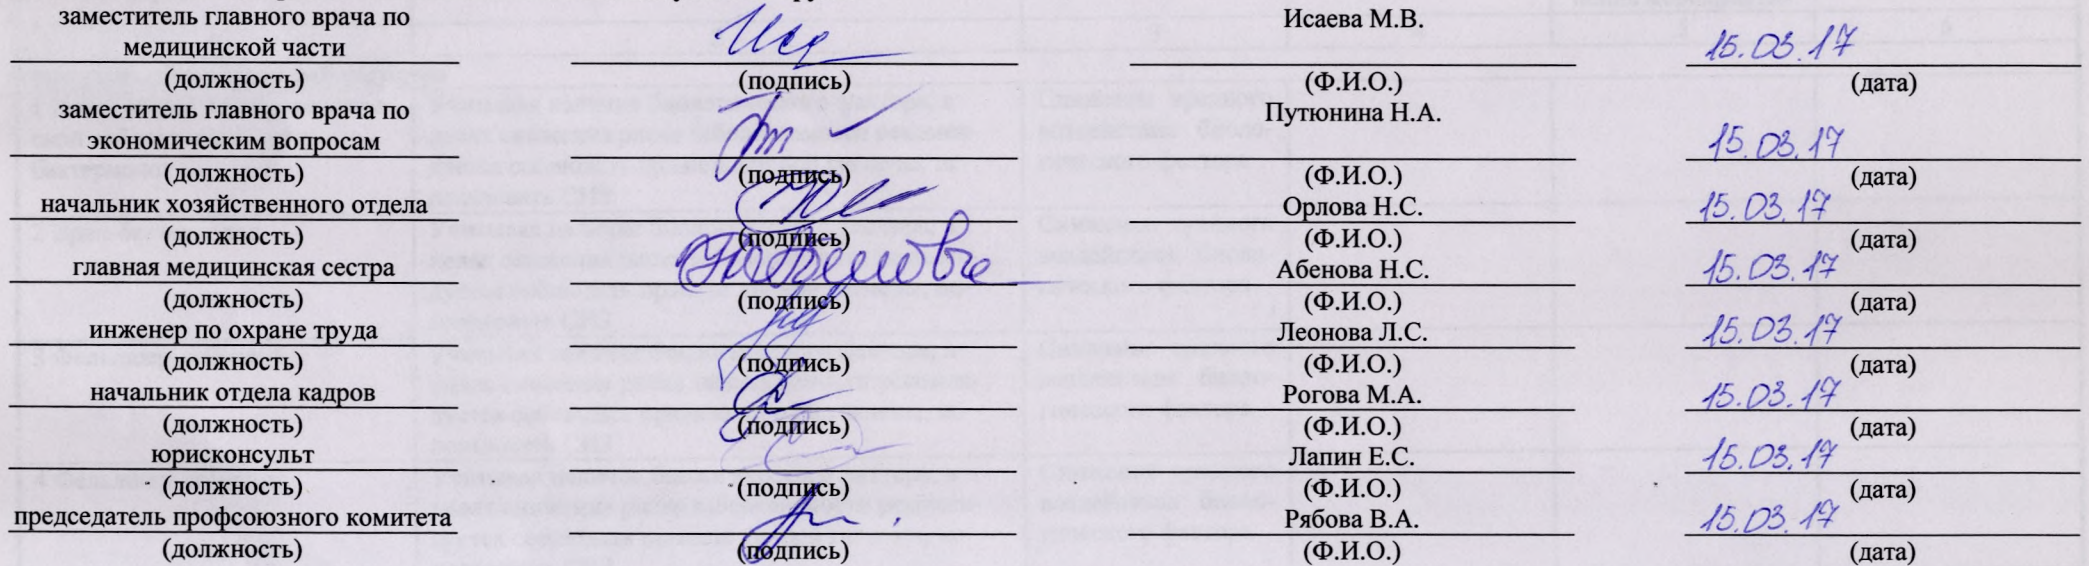 заместитель главного врача по Исаева М.В.
медицинской части 15.03.17
(должность) (подпись) (Ф.И.О.) (дата)
заместитель главного врача по Путюнина Н.А.
экономическим вопросам 15.03.17
(должность) (подпись) (Ф.И.О.) (дата)
начальник хозяйственного отдела Орлова Н.С. 15.03.17
(должность) (подпись) (Ф.И.О.) (дата)
главная медицинская сестра Абенова Н.С. 15.03.17
(должность) (подпись) (Ф.И.О.) (дата)
инженер по охране труда Леонова Л.С. 15.03.17
(должность) (подпись) (Ф.И.О.) (дата)
начальник отдела кадров Рогова М.А. 15.03.17
(должность) (подпись) (Ф.И.О.) (дата)
юрисконсульт Лапин Е.С. 15.03.17
(должность) (подпись) (Ф.И.О.) (дата)
председатель профсоюзного комитета Рябова В.А. 15.03.17
(должность) (подпись) (Ф.И.О.) (дата)